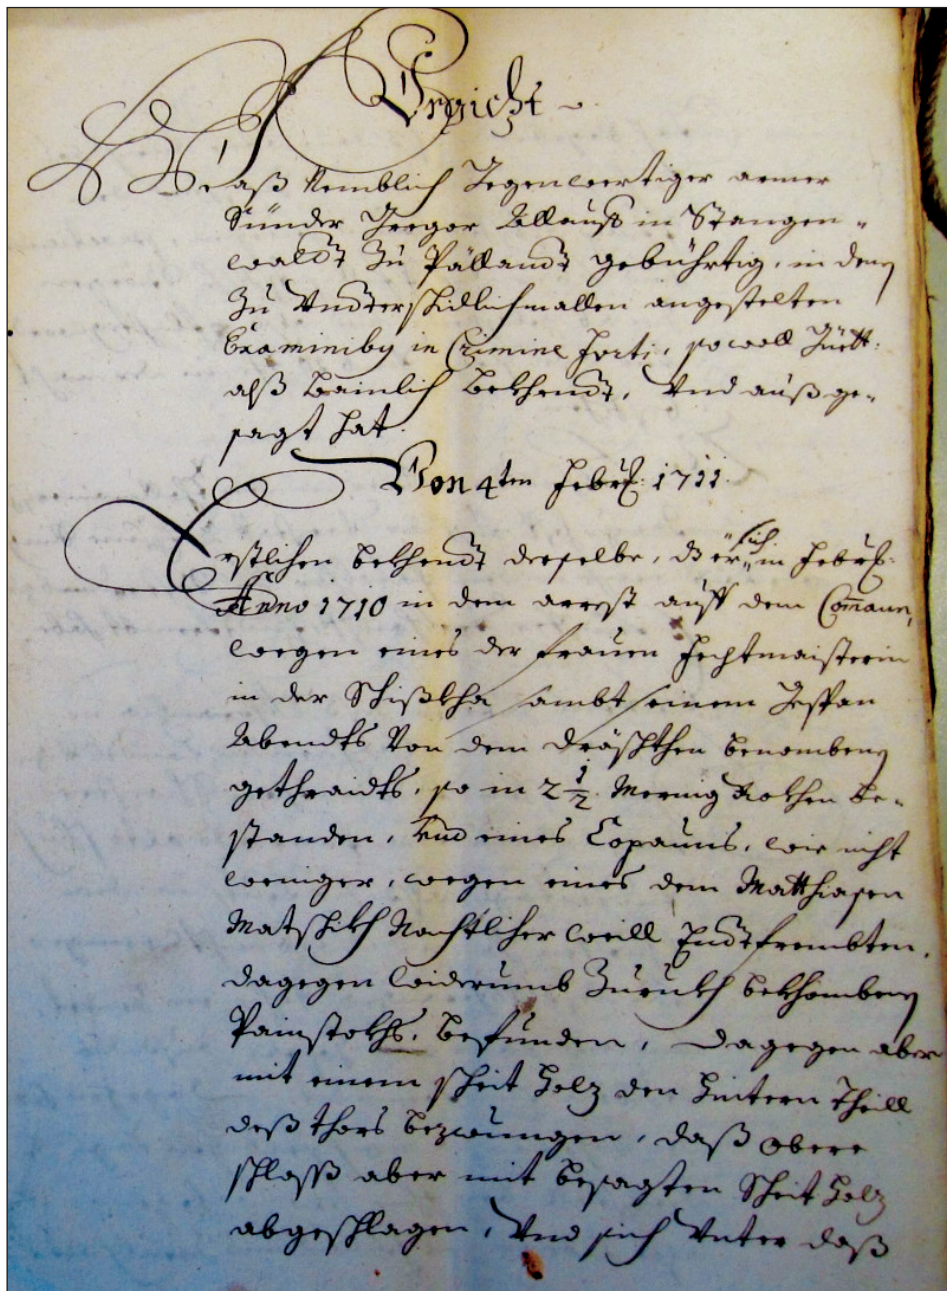 Urgicht
Waß Nemblich Gegenwertiger armer
Sünder Gregor Allauß in Stangen=
waldt Zu Pällandt gebührtig, in deny
Zu Vndterschidlichmallen angestelten
Examiniby in Crimine Forti, sowoll Güett:
alß Painlich bekhendt, Vnd außge=
sagt hat.
Von 4ten Febr: 1711.
Erstlichen bekhendt derselbe, dz er sich in Febr:
Anno 1710 in dem arrest auff dem Comaun,
wegen eines der frauen Fechtmaisterin
in der Schißkha sambt seinem Gespan
Abendts Von dem dräschthen benombeny
gethraidts, so in 2 1/2 Mernig Rokhen be=
standen, Vnd eines Copauns, wie nicht
weniger, wegen eines dem Matthiasen
Matschikh Nachtlicher weill Endtfrembten,
dagegen widerumb Zurukh bekhombeny
Painstokhs, befunden, dagegen aber
mit einem scheit Holz den hintern Theill
deß thors bezwungen, daß obere
schloß aber mit besagten Scheit Holz
abgeschlagen, Vnd sich Vnter daß